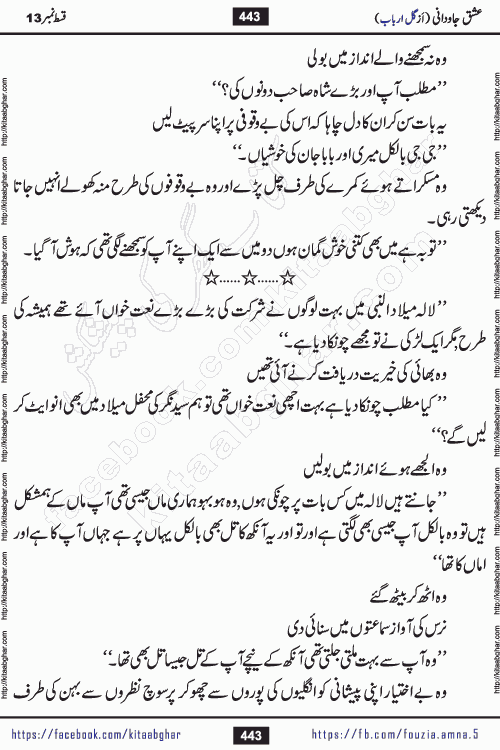 عشق جاودانی (از گل ارباب)
443
قسط نمبر 13
وہ نہ سمجھنے والے انداز میں بولی
’’مطلب آپ اور بڑے شاہ صاحب دونوں کی؟‘‘
یہ بات سن کر ان کا دل چاہا کہ اس کی بے وقوفی پر اپنا سر پیٹ لیں
’’جی جی بالکل میری اور بابا جان کی خوشیاں۔‘‘
وہ مسکراتے ہوئے کمرے کی طرف چل پڑے اور وہ بے وقوفوں کی طرح منہ کھولے انہیں جاتا
دیکھتی رہی۔
’’توبہ ہے میں بھی کتنی خوش گمان ہوں دو میں سے ایک اپنے آپ کو سمجھنے لگی تھی کہ ہوش آ گیا۔
☆......☆......☆
’’لالہ میلاد النبی میں بہت لوگوں نے شرکت کی بڑے بڑے نعت خواں آئے تھے ہمیشہ کی
طرح, مگر ایک لڑکی نے تو مجھے چونکا دیا ہے۔‘‘
وہ بھائی کی خیریت دریافت کرنے آئی تھیں
’’کیا مطلب چونکا دیا ہے بہت اچھی نعت خواں تھی تو ہم سید نگر کی محفل میلاد میں بھی انوایٹ کر
لیں گے؟‘‘
وہ الجھے ہوئے انداز میں بولیں
’’جانتے ہیں لالہ میں کس بات پر چونکی ہوں, وہ ہو بہو ہماری ماں جیسی تھی آپ ماں کے ہمشکل
ہیں تو وہ بالکل آپ جیسی بھی لگتی ہے اور تو اور یہ آنکھ کا تل بھی بالکل یہاں پر ہے جہاں آپ کا ہے اور
اماں کا تھا‘‘
وہ اٹھ کر بیٹھ گئے
نرس کی آواز سماعتوں میں سنائی دی
’’وہ آپ سے بہت ملتی جلتی تھی آنکھ کے نیچے آپ کے تل جیسا تل بھی تھا۔‘‘
وہ بے اختیار اپنی پیشانی کو انگلیوں کی پوروں سے چھو کر پر سوچ نظروں سے بہن کی طرف
https://facebook.com/kitaabghar
443
https://fb.com/fouzia.amna.5
http://kitaabghar.com
facebook.com/kitaabghar
kitaabghar.com